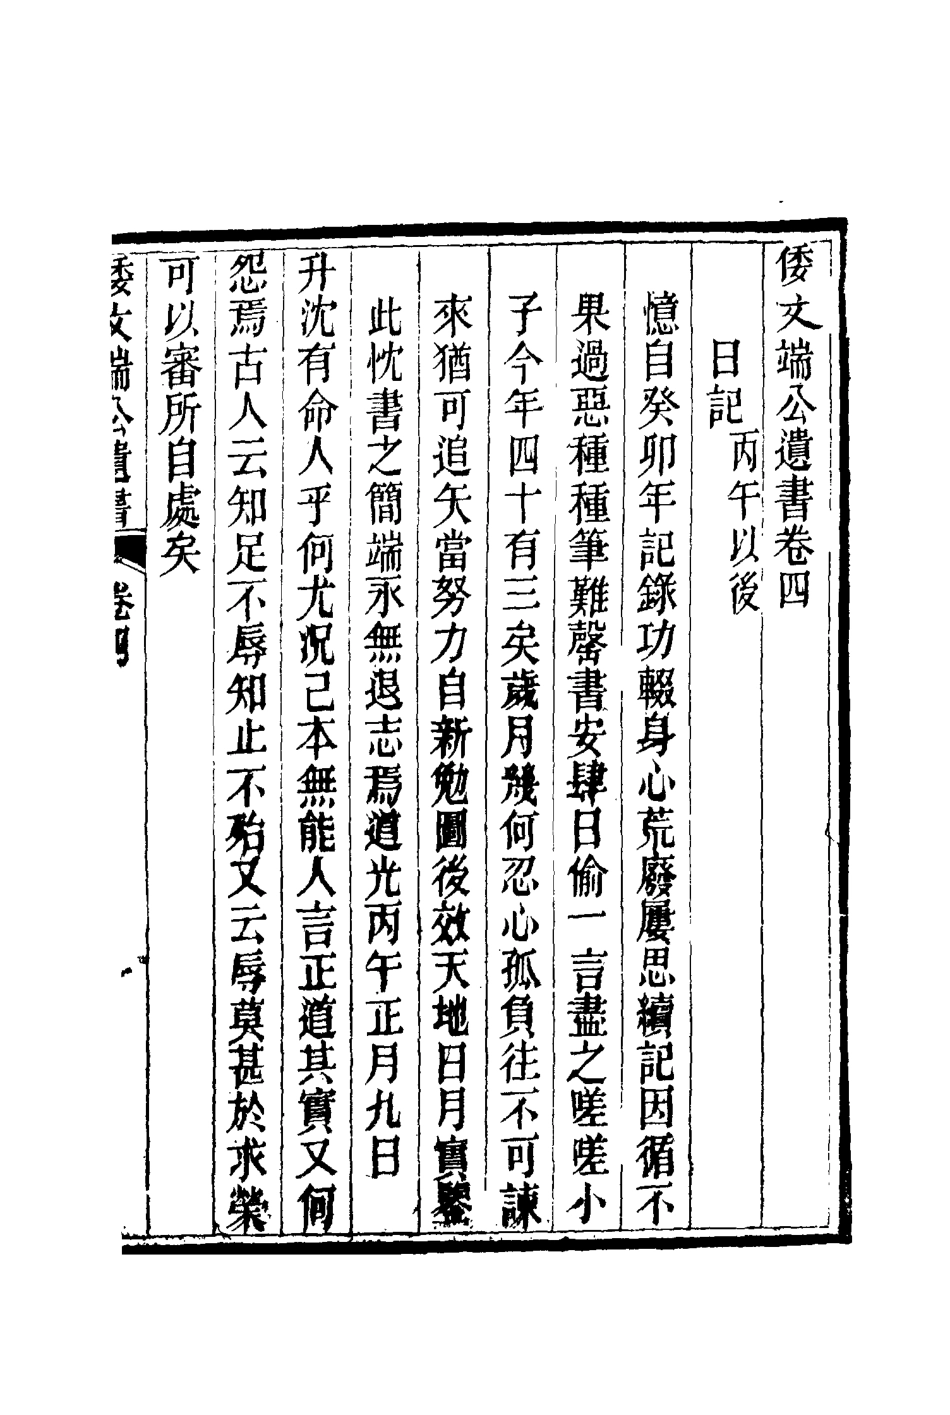 倭文端公遺書卷四
日記丙午以後
憶自癸卯年記錄功輟身心荒廢屢思續記因循不
果過惡種種筆難罄書安肆日偷一言盡之嗟嗟小
子今年四十有三矣歲月幾何忍心孤負往不可諫
來猶可追矢當努力自新勉圖後效天地日月實鑒
此忱書之簡端永無退志焉道光丙午正月九日
升沈有命人乎何尤況己本無能人言正道其實又何
怨焉古人云知足不辱知止不殆又云辱莫甚於求榮
可以審所自處矣
倭文端公遺書 卷四